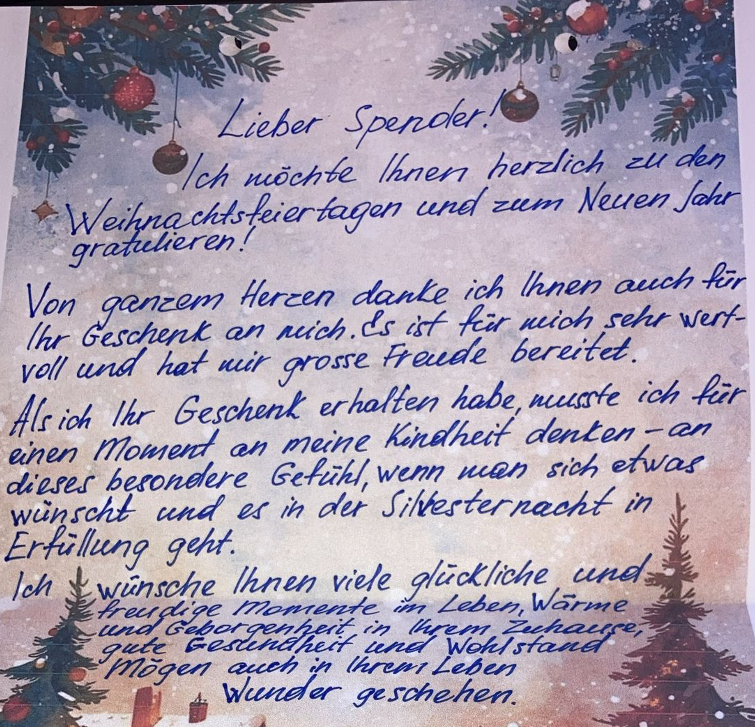 Lieber Spender!
Ich möchte Ihnen herzlich zu den
Weihnachtsfeiertagen und zum Neuen Jahr
gratulieren!
Von ganzem Herzen danke ich Ihnen auch für
Ihr Geschenk an mich. Es ist für mich sehr wert-
voll und hat mir grosse Freude bereitet.
Als ich Ihr Geschenk erhalten habe, musste ich für
einen Moment an meine Kindheit denken – an
dieses besondere Gefühl, wenn man sich etwas
wünscht und es in der Silvesternacht in
Erfüllung geht.
Ich wünsche Ihnen viele glückliche und
freudige Momente im Leben, Wärme
und Geborgenheit in Ihrem Zuhause,
gute Gesundheit und Wohlstand
Mögen auch in Ihrem Leben
Wunder geschehen.